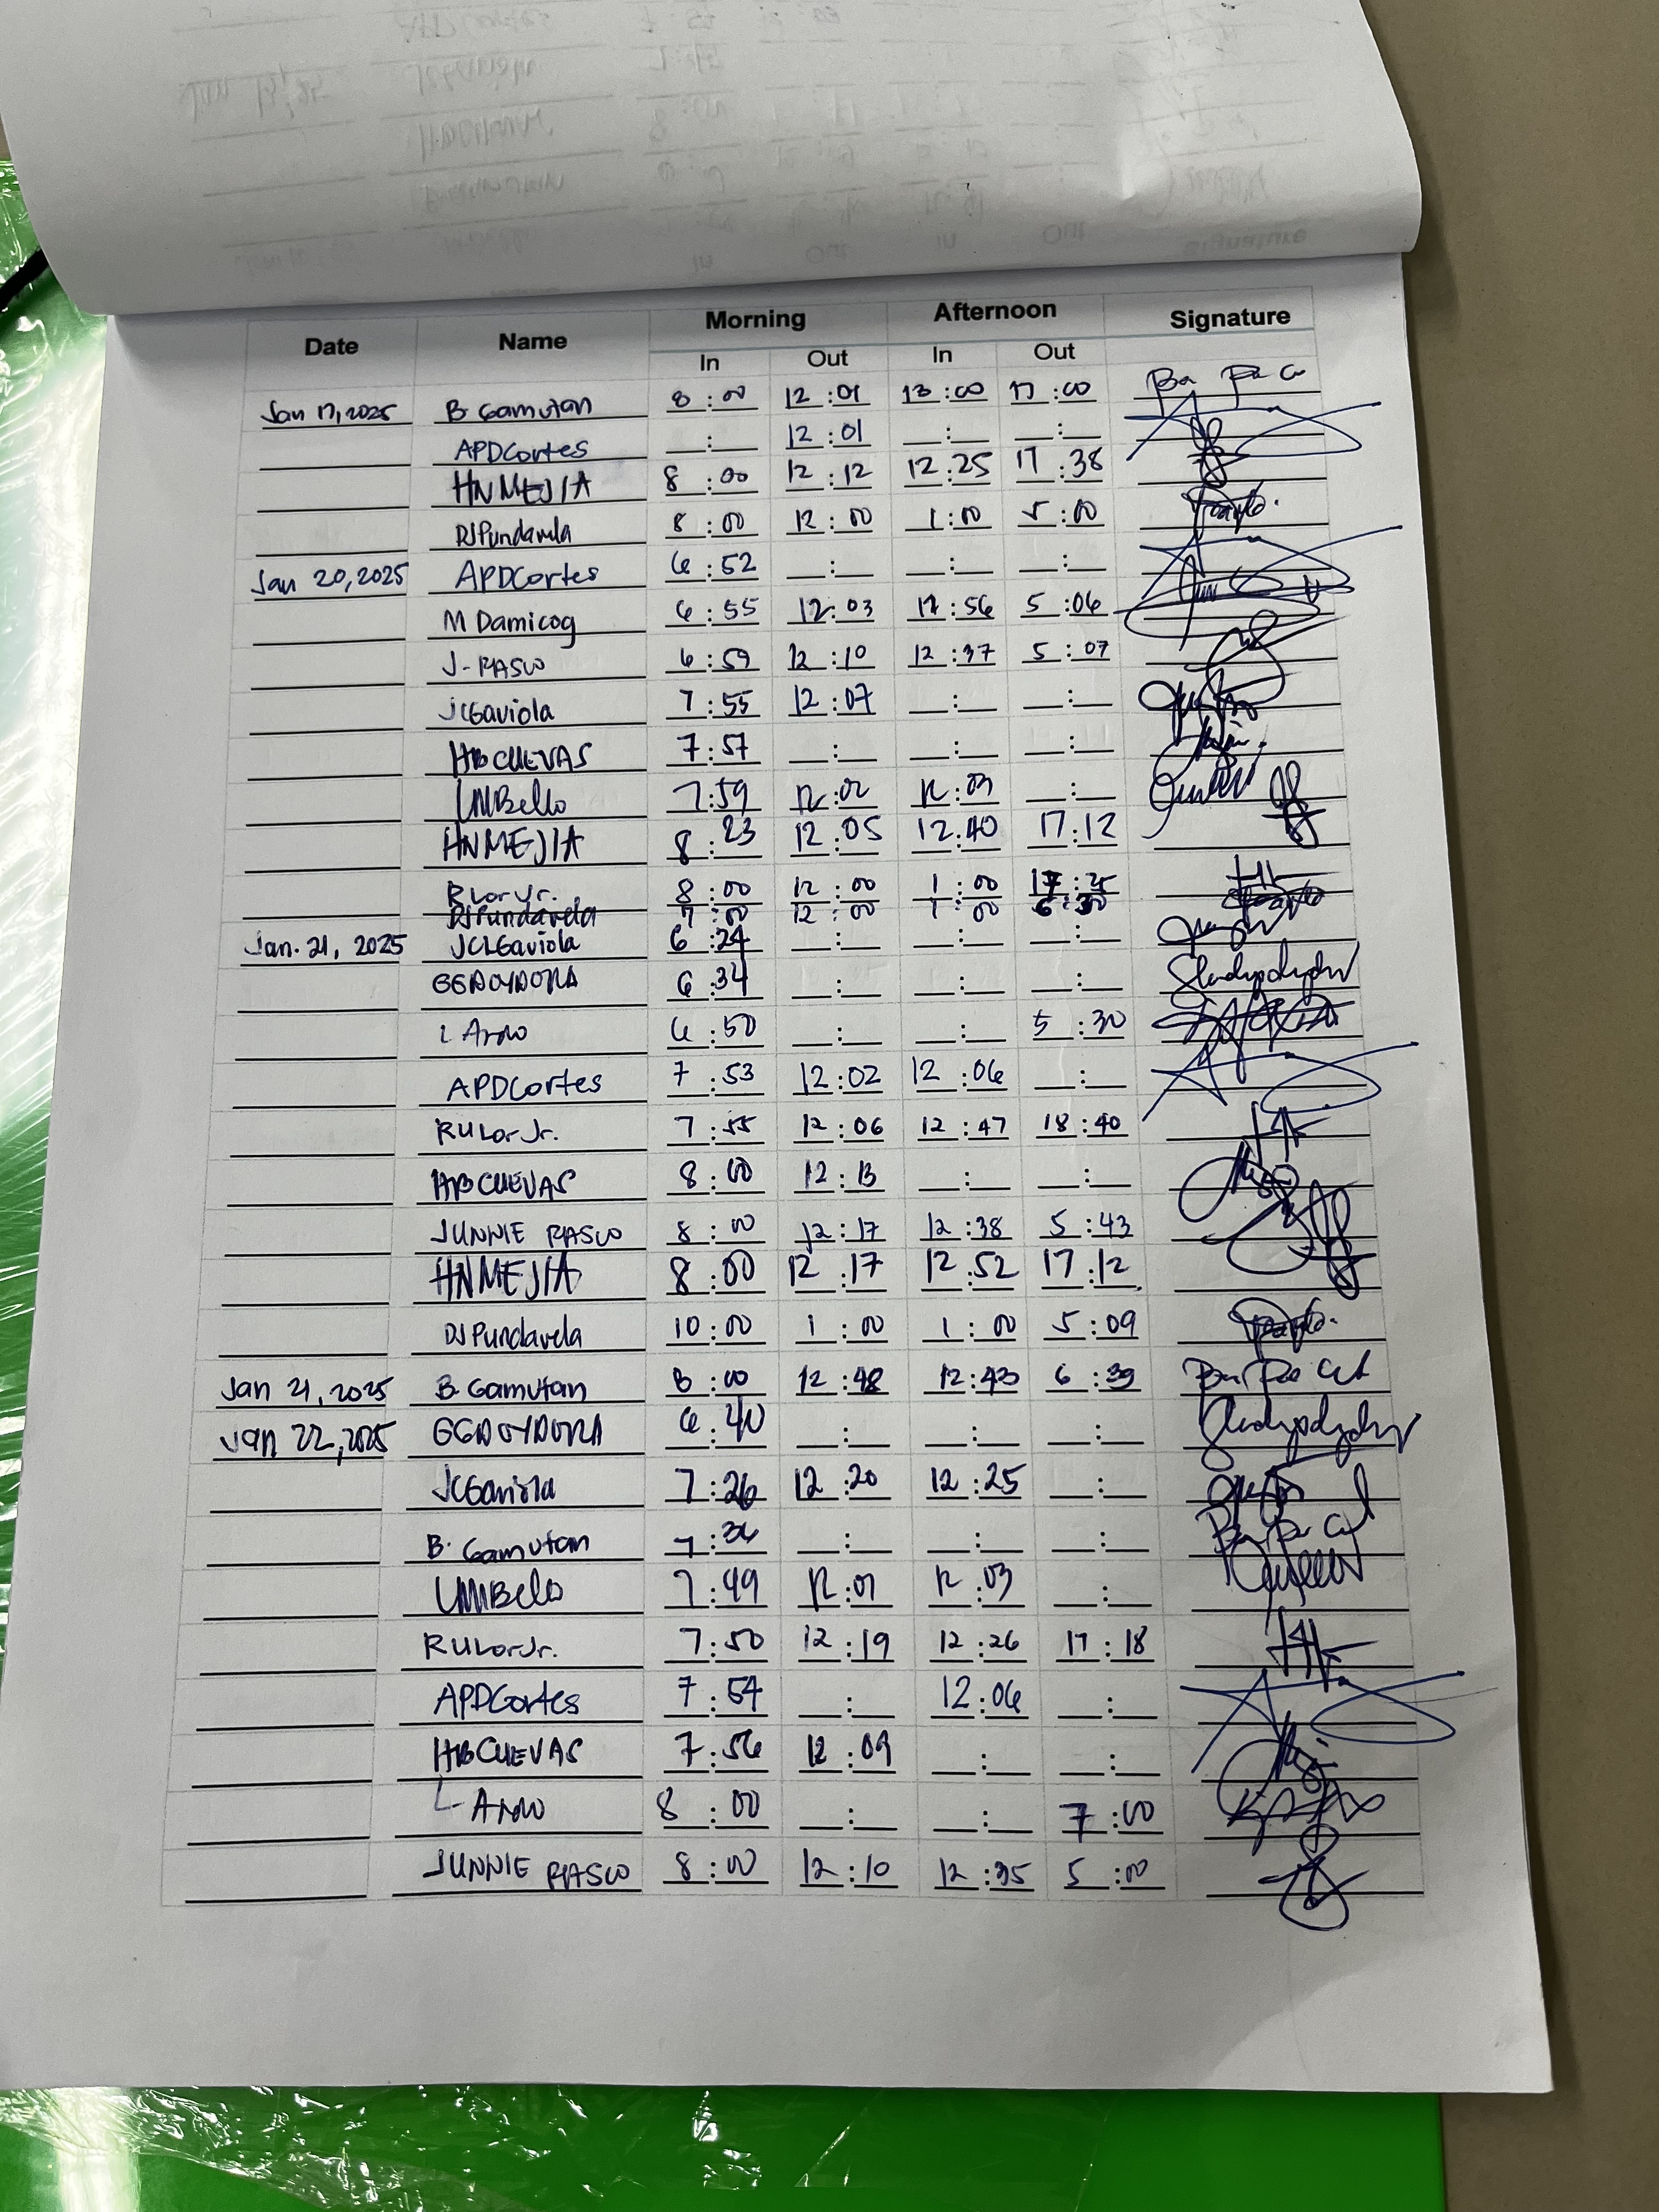 Date Name Morning Afternoon Signature
In Out In Out
Jan 17, 2025 B. Gamutan 8:00 12:01 13:00 17:00
APDCortes __:__ 12:01 __:__ __:__
HNMEJIA 8:00 12:12 12:25 17:38
DJPundavela 8:00 12:00 1:00 5:00
Jan 20, 2025 APDCortes 6:52 __:__ __:__ __:__
M Damicog 6:55 12:03 12:56 5:06
J-RASCO 6:59 12:10 12:37 5:07
JCGaviola 7:55 12:07 __:__ __:__
HBCUEVAS 7:57 __:__ __:__ __:__
LMBello 7:59 12:02 12:03 __:__
HNMEJIA 8:23 12:05 12:40 17:12
RLorJr. 8:00 12:00 1:00 17:25
DJPundavela 7:00 12:00 1:00 6:30
Jan. 21, 2025 JCLGaviola 6:24 __:__ __:__ __:__
GGDOYDORA 6:34 __:__ __:__ __:__
L Arno 6:50 __:__ __:__ 5:30
APDCortes 7:53 12:02 12:06 __:__
RULorJr. 7:55 12:06 12:47 18:40
HBCUEVAS 8:00 12:13 __:__ __:__
JUNNIE RASCO 8:00 12:17 12:38 5:43
HNMEJIA 8:00 12:17 12:52 17:12
DJPundavela 10:00 1:00 1:00 5:09
Jan 21, 2025 B. Gamutan 8:00 12:48 12:43 6:39
Jan 22, 2025 GGDOYDORA 6:40 __:__ __:__ __:__
JCGaviola 7:26 12:20 12:25 __:__
B. Gamutan 7:36 __:__ __:__ __:__
LMBello 7:49 12:01 12:03 __:__
RULorJr. 7:50 12:19 12:26 17:18
APDCortes 7:54 __:__ 12:06 __:__
HBCUEVAS 7:56 12:09 __:__ __:__
L- Arno 8:00 __:__ __:__ 7:00
JUNNIE RASCO 8:00 12:10 12:35 5:00